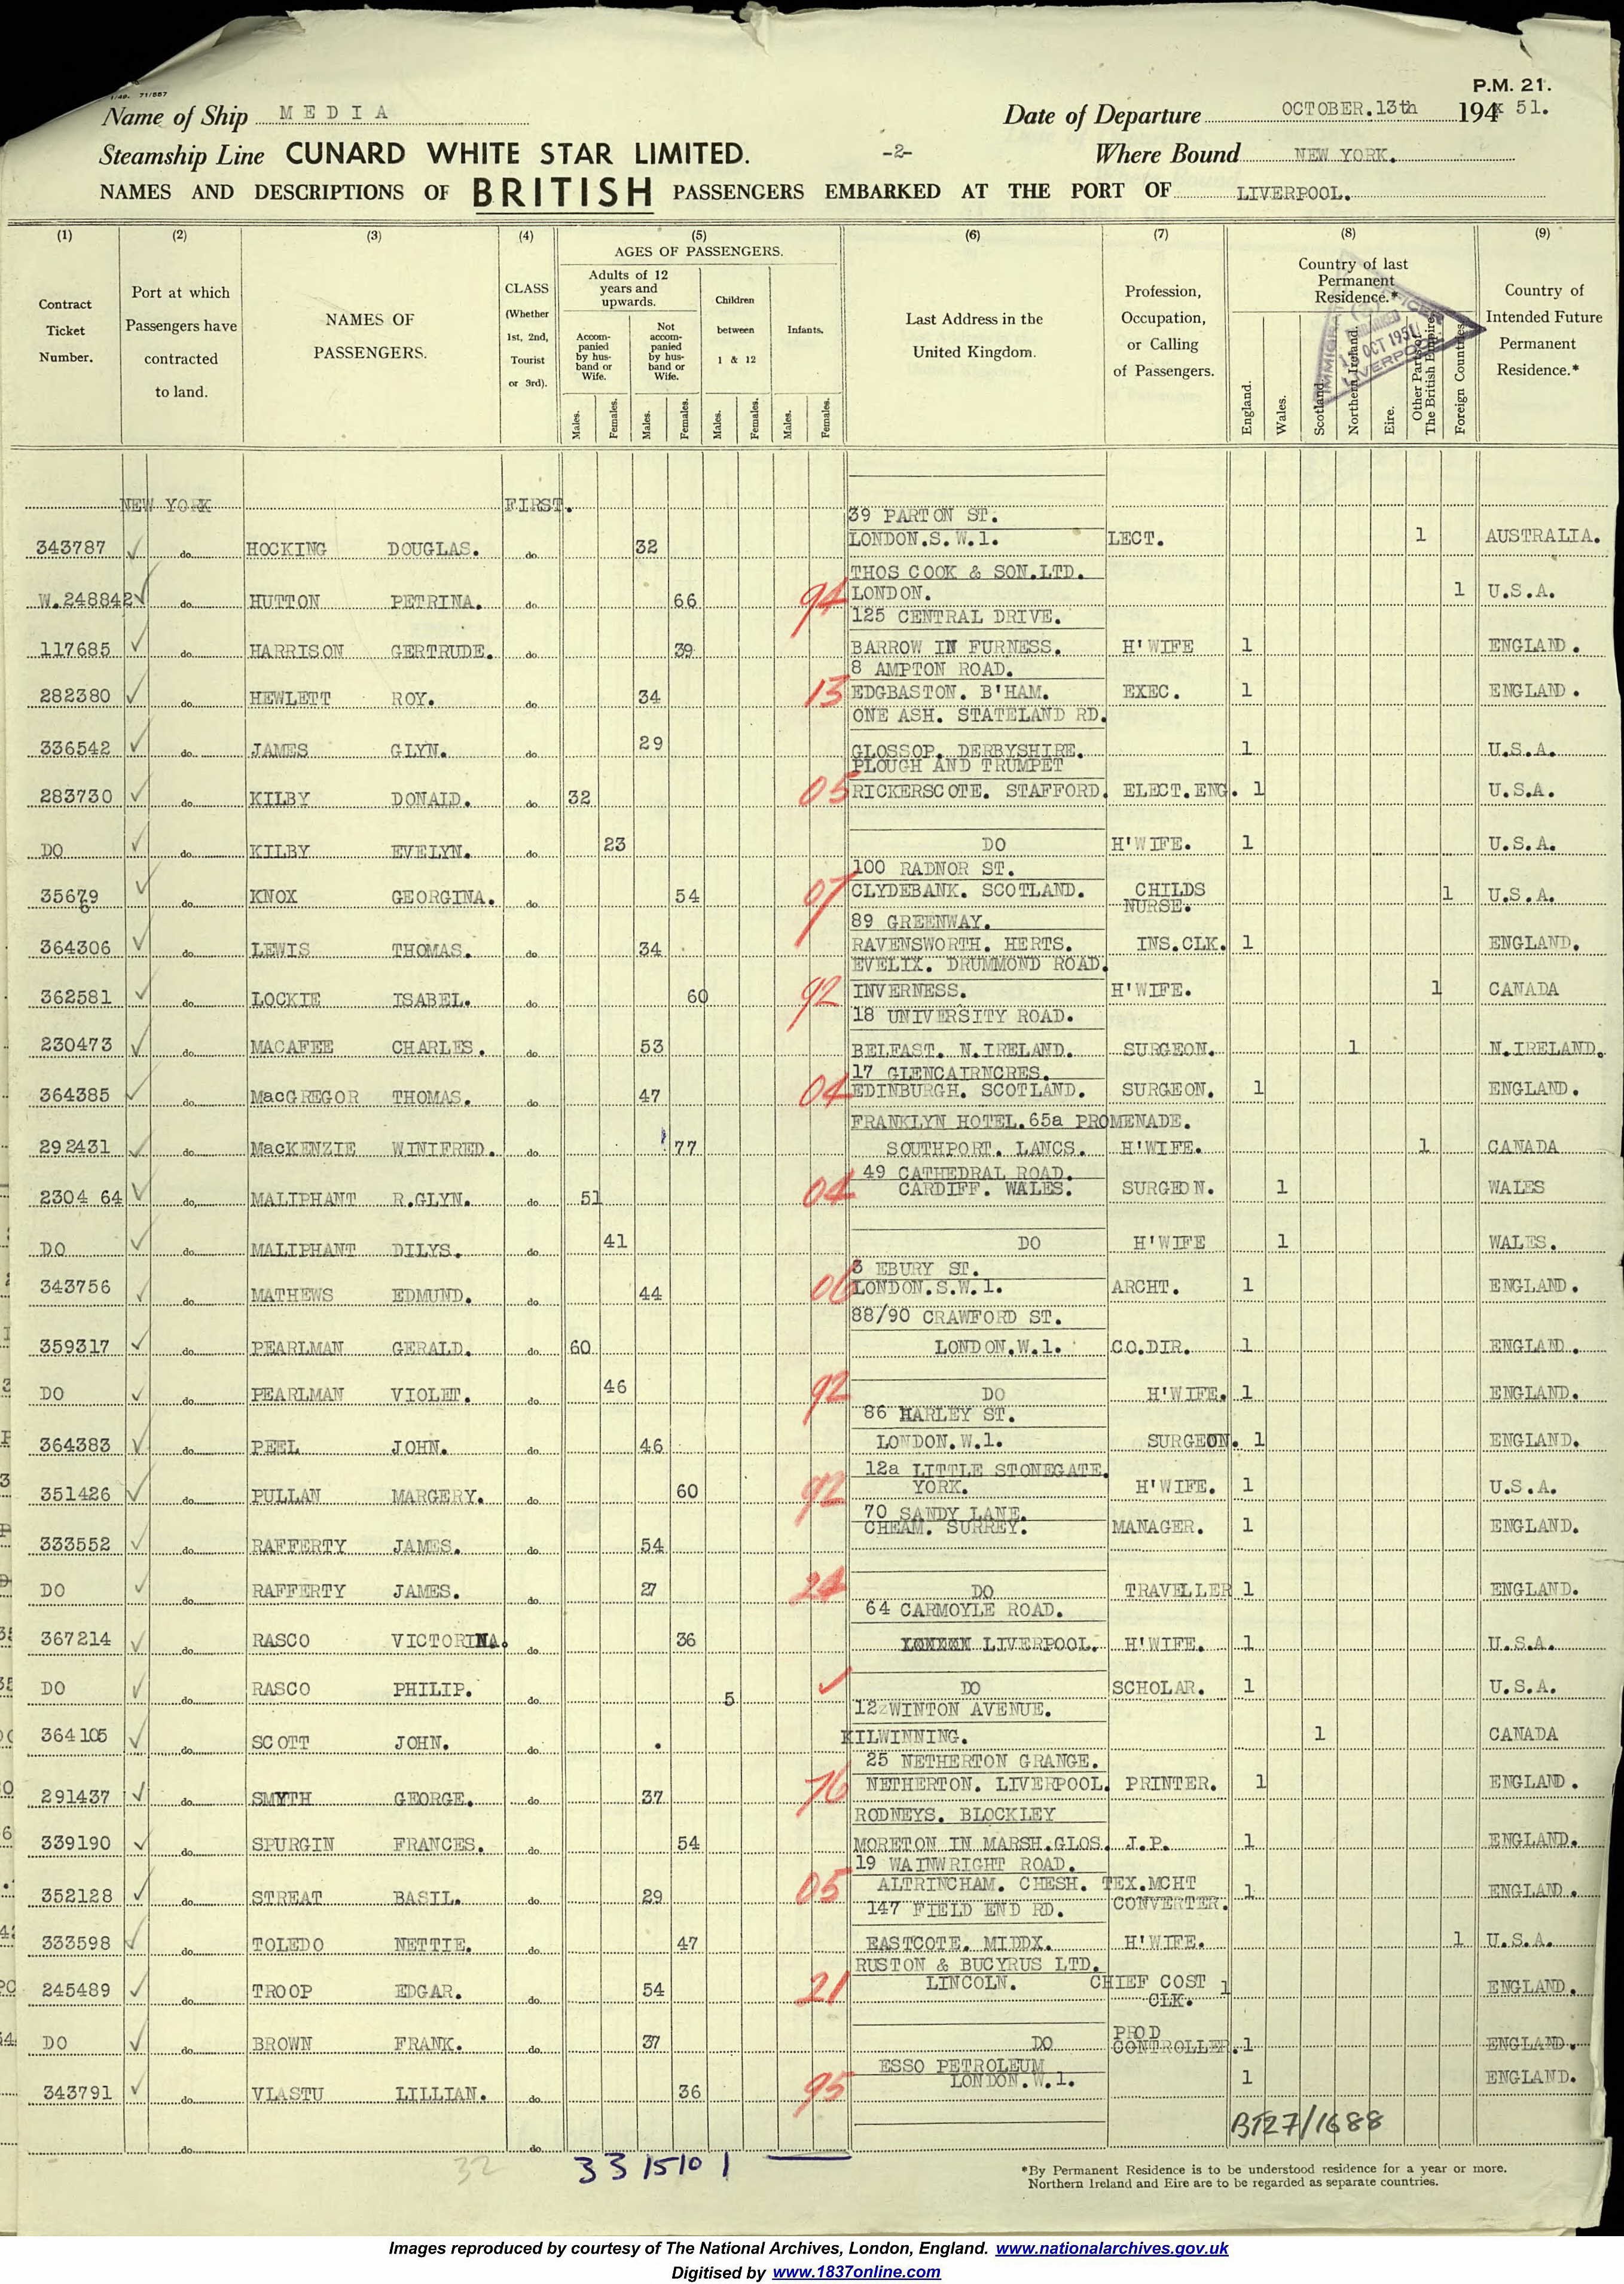 1/49. 71/557
P.M. 21.
Name of Ship MEDIA Date of Departure OCTOBER.13th 194 51.
Steamship Line CUNARD WHITE STAR LIMITED. -2- Where Bound NEW YORK.
NAMES AND DESCRIPTIONS OF BRITISH PASSENGERS EMBARKED AT THE PORT OF LIVERPOOL.
(1) (2) (3) (4) (5) (6) (7) (8) (9)
Contract Ticket Number.
Port at which Passengers have contracted to land.
NAMES OF PASSENGERS.
CLASS (Whether 1st, 2nd, Tourist or 3rd).
AGES OF PASSENGERS.
Adults of 12 years and upwards.
Accompanied by husband or Wife.
Not accompanied by husband or Wife.
Children between 1 & 12
Infants.
Males. Females. Males. Females. Males. Females. Males. Females.
Last Address in the United Kingdom.
Profession, Occupation, or Calling of Passengers.
Country of last Permanent Residence.*
England. Wales. Scotland. Northern Ireland. Eire. Other Parts of The British Empire. Foreign Countries.
Country of Intended Future Permanent Residence.*
IMMIGRATION OFFICER
OCT 1951
LIVERPOOL
NEW YORK FIRST.
39 PARTON ST.
343787 do HOCKING DOUGLAS. do 32 LONDON.S.W.1. LECT. 1 AUSTRALIA.
THOS COOK & SON.LTD.
W.248842 do HUTTON PETRINA. do 66 94 LONDON. 1 U.S.A.
125 CENTRAL DRIVE.
117685 do HARRISON GERTRUDE. do 39 BARROW IN FURNESS. H'WIFE 1 ENGLAND.
8 AMPTON ROAD.
282380 do HEWLETT ROY. do 34 13 EDGBASTON. B'HAM. EXEC. 1 ENGLAND.
ONE ASH. STATELAND RD.
336542 do JAMES GLYN. do 29 GLOSSOP. DERBYSHIRE. 1 U.S.A.
PLOUGH AND TRUMPET
283730 do KILBY DONALD. do 32 05 RICKERSCOTE. STAFFORD. ELECT.ENG. 1 U.S.A.
DO do KILBY EVELYN. do 23 DO H'WIFE. 1 U.S.A.
100 RADNOR ST.
35679 6 do KNOX GEORGINA. do 54 07 CLYDEBANK. SCOTLAND. CHILDS NURSE. 1 U.S.A.
89 GREENWAY.
364306 do LEWIS THOMAS. do 34 RAVENSWORTH. HERTS. INS.CLK. 1 ENGLAND.
EVELIX. DRUMMOND ROAD.
362581 do LOCKIE ISABEL. do 60 92 INVERNESS. H'WIFE. 1 CANADA
18 UNIVERSITY ROAD.
230473 do MACAFEE CHARLES. do 53 BELFAST. N.IRELAND. SURGEON. 1 N.IRELAND.
17 GLENCAIRNCRES.
364385 do MacGREGOR THOMAS. do 47 04 EDINBURGH. SCOTLAND. SURGEON. 1 ENGLAND.
FRANKLYN HOTEL.65a PROMENADE.
292431 do MacKENZIE WINIFRED. do 77 SOUTHPORT. LANCS. H'WIFE. 1 CANADA
49 CATHEDRAL ROAD.
2304 64 do MALIPHANT R.GLYN. do 51 04 CARDIFF. WALES. SURGEON. 1 WALES
DO do MALIPHANT DILYS. do 41 DO H'WIFE 1 WALES.
3 EBURY ST.
343756 do MATHEWS EDMUND. do 44 06 LONDON.S.W.1. ARCHT. 1 ENGLAND.
88/90 CRAWFORD ST.
359317 do PEARLMAN GERALD. do 60 LONDON.W.1. CO.DIR. 1 ENGLAND.
DO do PEARLMAN VIOLET. do 46 92 DO H'WIFE. 1 ENGLAND.
86 HARLEY ST.
364383 do PEEL JOHN. do 46 LONDON.W.1. SURGEON. 1 ENGLAND.
12a LITTLE STONEGATE.
351426 do PULLAN MARGERY. do 60 92 YORK. H'WIFE. 1 U.S.A.
70 SANDY LANE.
333552 do RAFFERTY JAMES. do 54 CHEAM. SURREY. MANAGER. 1 ENGLAND.
DO do RAFFERTY JAMES. do 27 24 DO TRAVELLER 1 ENGLAND.
64 CARMOYLE ROAD.
367214 do RASCO VICTORINA. do 36 LIVERPOOL. H'WIFE. 1 U.S.A.
DO do RASCO PHILIP. do 5 DO SCHOLAR. 1 U.S.A.
122WINTON AVENUE.
364105 do SCOTT JOHN. do . KILWINNING. 1 CANADA
25 NETHERTON GRANGE.
291437 do SMYTH GEORGE. do 37 76 NETHERTON. LIVERPOOL. PRINTER. 1 ENGLAND.
RODNEYS. BLOCKLEY
339190 do SPURGIN FRANCES. do 54 MORETON IN MARSH.GLOS. J.P. 1 ENGLAND.
19 WAINWRIGHT ROAD.
352128 do STREAT BASIL. do 29 05 ALTRINCHAM. CHESH. TEX.MCHT CONVERTER. 1 ENGLAND.
147 FIELD END RD.
333598 do TOLEDO NETTIE. do 47 EASTCOTE. MIDDX. H'WIFE. 1 U.S.A.
RUSTON & BUCYRUS LTD.
245489 do TROOP EDGAR. do 54 21 LINCOLN. CHIEF COST CLK. 1 ENGLAND.
DO do BROWN FRANK. do 37 DO PROD CONTROLLER. 1 ENGLAND.
ESSO PETROLEUM
343791 do VLASTU LILLIAN. do 36 95 LONDON.W.1. 1 ENGLAND.
BT27/1688
do do
32 3 3 15 10 1
*By Permanent Residence is to be understood residence for a year or more.
Northern Ireland and Eire are to be regarded as separate countries.
Images reproduced by courtesy of The National Archives, London, England. www.nationalarchives.gov.uk
Digitised by www.1837online.com